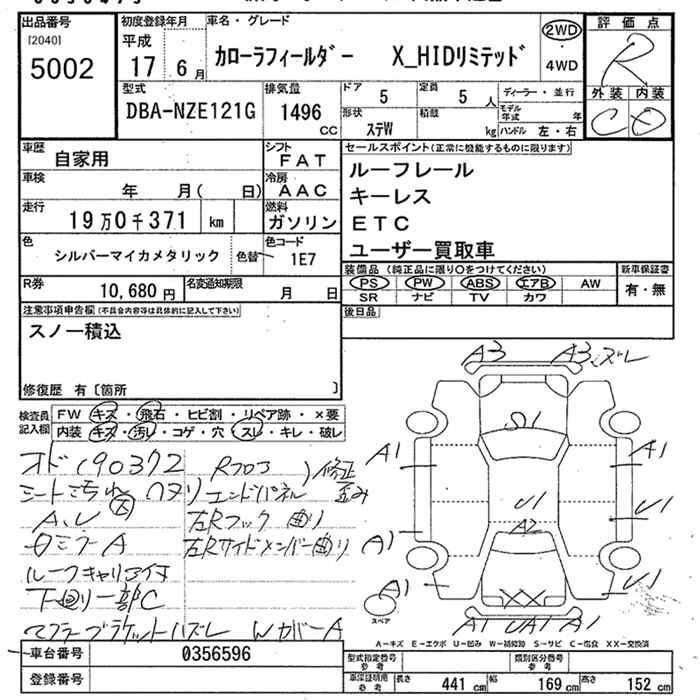 出品番号
[2040]
5002
初度登録年月
平成
17 6 月
車名・グレード
カローラフィールダー X_HIDリミテッド
2WD
・
4WD
評価点
R
外装 内装
C D
型式
DBA-NZE121G
排気量
1496
CC
ドア 5
定員 5 人
形状 ステW
積載 kg
ディーラー・並行
モデル年式 年
ハンドル 左・右
車歴 自家用
シフト FAT
車検 年 月( 日)
冷房 AAC
走行 19万0千371 km
燃料 ガソリン
色 シルバーマイカメタリック 色替
色コード 1E7
R券 10,680 円
名変通知期限 月 日
セールスポイント(正常に機能するものに限ります)
ルーフレール
キーレス
ETC
ユーザー買取車
装備品 (純正品に限り○をつけてください)
PS PW ABS エアB AW
SR ナビ TV カワ
新車保証書
有・無
注意事項申告欄(不具合内容等は具体的に記入して下さい)
スノー積込
修復歴 有〔箇所 〕
後日品
検査員記入欄
FW キズ・飛石・ヒビ割・リペア跡・×要
内装 キズ・汚レ・コゲ・穴・スレ・キレ・破レ
オド190372
シートよごれ 大
A、U
ミラーA
ルーフキャリア付
下回り一部C
マフラーブラケットハズレ WカバーA
Rフロア
エンドパネル
修正
歪み
左Rフック曲り
左Rサイドメンバー曲り
A3 A3 ズレ
A1 A1
U1 U1
A2
A1
A1 U1
A1 UA1 A1
XX
スペア
A-キズ E-エクボ U-凹み W-補修跡 S-サビ C-腐食 XX-交換済
車台番号 0356596
登録番号
型式指定番号 参考
類別区分番号 参考
車庫証明用 参考
長さ 441 cm
幅 169 cm
高さ 152 cm